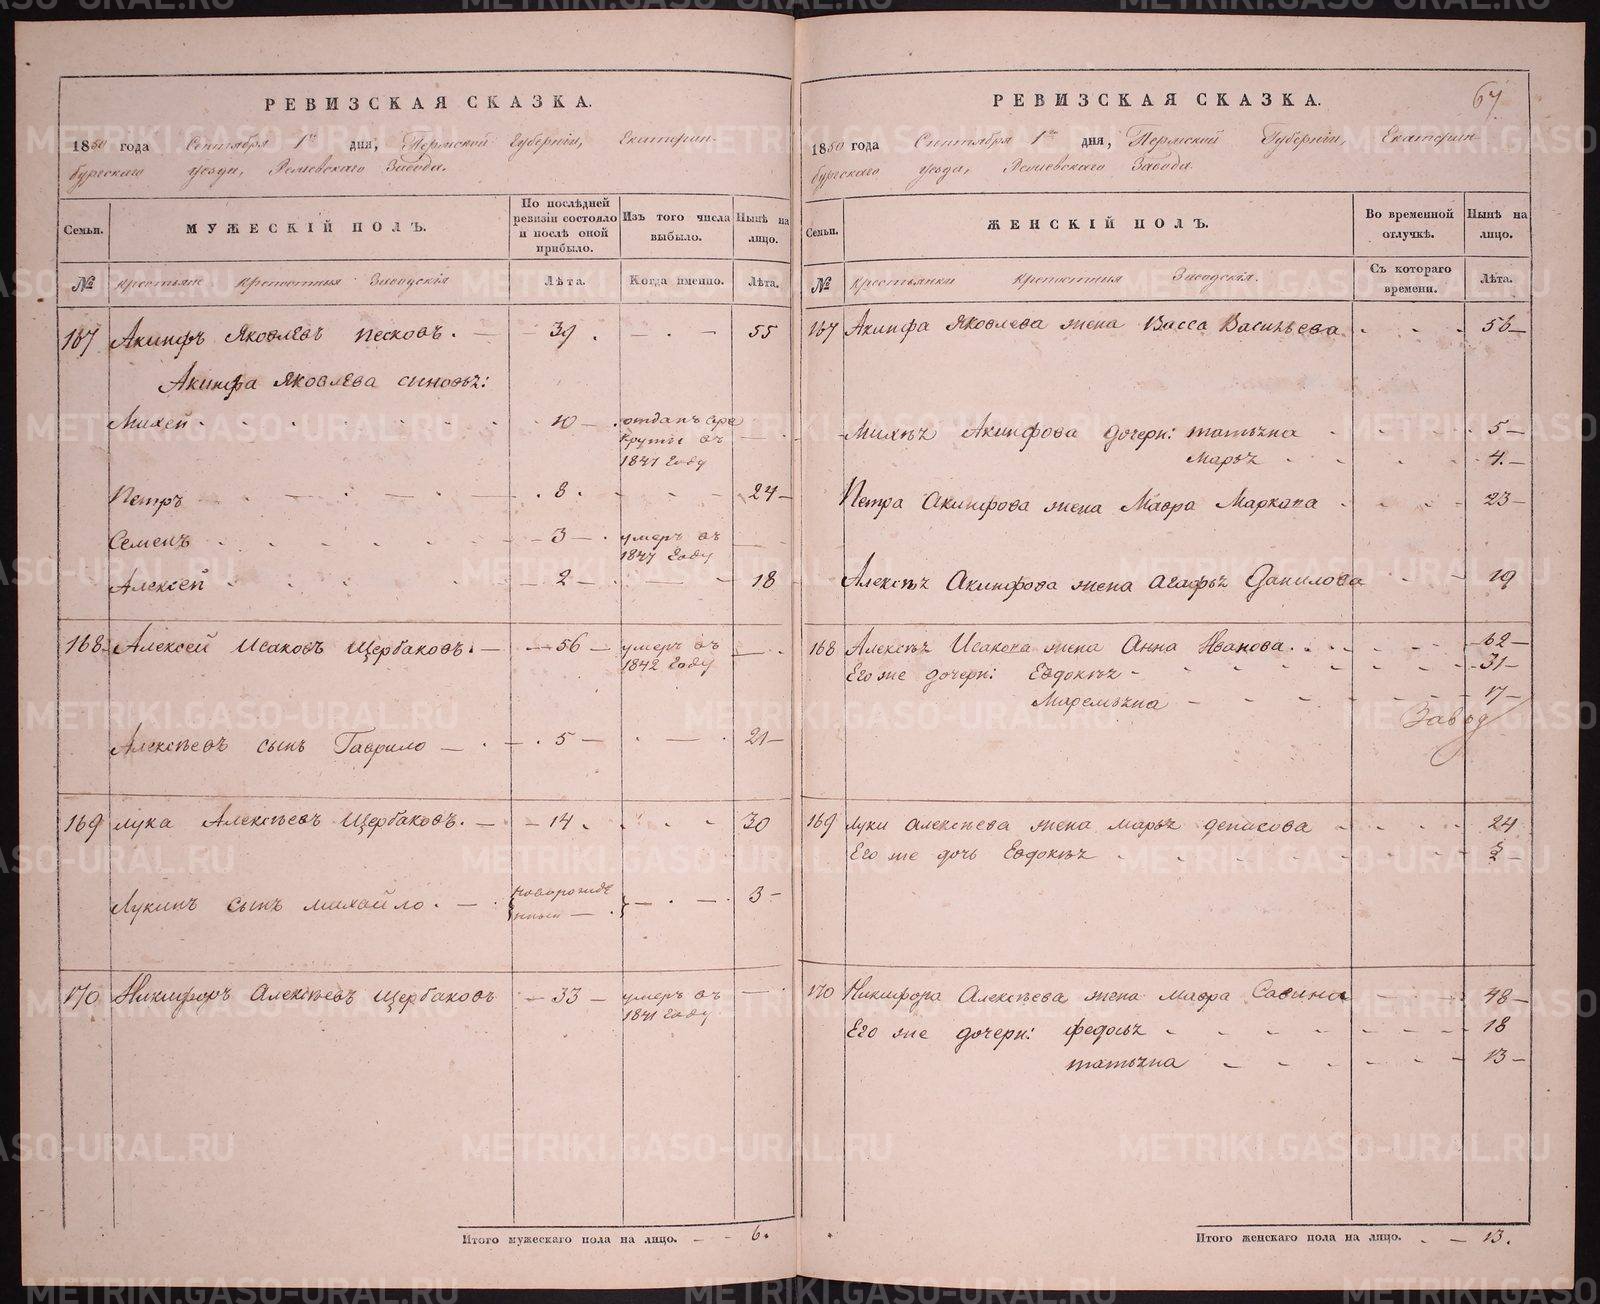 РЕВИЗСКАЯ СКАЗКА.
1850 года Сентября 1го дня, Пермской Губернiи, Екатерин-
бургскаго уезда, Режевскаго Завода.
Семьи.
МУЖЕСКIЙ ПОЛЪ.
По послѣдней ревизiи состояло и послѣ оной прибыло.
Изъ того числа выбыло.
Нынѣ на лицо.
№
крестьяне крепостныя Заводскiя
Лѣта.
Когда именно.
Лѣта.
167 Акинфъ Яковлевъ Песковъ. 39. 55
Акинфа Яковлева сыновья:
Михей 10 отданъ въ ре
круты въ
1841 году
Петръ 8. 24
Семенъ 3 умеръ въ
1847 году
Алексей 2 18
168 Алексей Исаковъ Щербаковъ. 56 умеръ въ
1842 году
Алексѣевъ сынъ Гаврило 5 21
169 Лука Алексѣевъ Щербаковъ. 14. 30
Лукинъ сынъ Михайло. новорожде
нный 3
170 Никифоръ Алексѣевъ Щербаковъ 33 умеръ въ
1841 году
Итого мужескаго пола на лицо. 6.
67.
РЕВИЗСКАЯ СКАЗКА.
1850 года Сентября 1го дня, Пермской Губернiи, Екатерин-
бургскаго уезда, Режевскаго Завода.
Семьи.
ЖЕНСКIЙ ПОЛЪ.
Во временной отлучкѣ.
Нынѣ на лицо.
№
Крестьянки крепостныя Заводскiя.
Съ котораго времени.
Лѣта.
167 Акинфа Яковлева жена Васса Васильева 56
Михѣя Акинфова дочери: Татьяна 5
Марья 4.
Петра Акинфова жена Мавра Маркова 23
Алексѣя Акинфова жена Агафья Данилова 19
168 Алексѣя Исакова жена Анна Иванова. 62
Его же дочери: Евдокѣя 31
Маремьяна 17
Завод
169 Луки Алексѣева жена Марья Денисова 24
Его же дочь Евдокѣя 2
170 Никифора Алексѣева жена Мавра Савина 48
Его же дочери: Федосья 18
Татьяна 13
Итого женскаго пола на лицо. 13.
METRIKI.GASO-URAL.RU